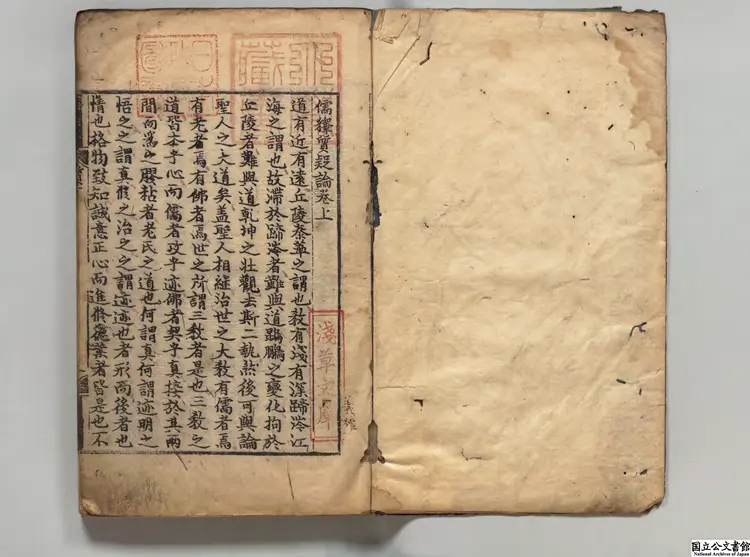 儒釋質疑論卷上
道有近有遠丘陵泰華之謂也敎有淺有深蹄涔江
海之謂也故滯於蹄涔者難與道鵾鵬之變化拘於
丘陵者難與道乾坤之壯觀去斯二執然後可與論
聖人之大道矣盖聖人相継治世之大敎有儒者焉
有老者焉有佛者焉世之所謂三敎者是也三敎之
道皆本乎心而儒者攻乎迹佛者契乎真接於其兩
間而爲之膠粘者老氏之道也何謂真何謂迹明之
悟之之謂真修之治之之謂迹迹也者形而後者也
情也格物致知誠意正心而進修德業者皆是也不
淺草文庫
國立公文書館
National Archives of Japan